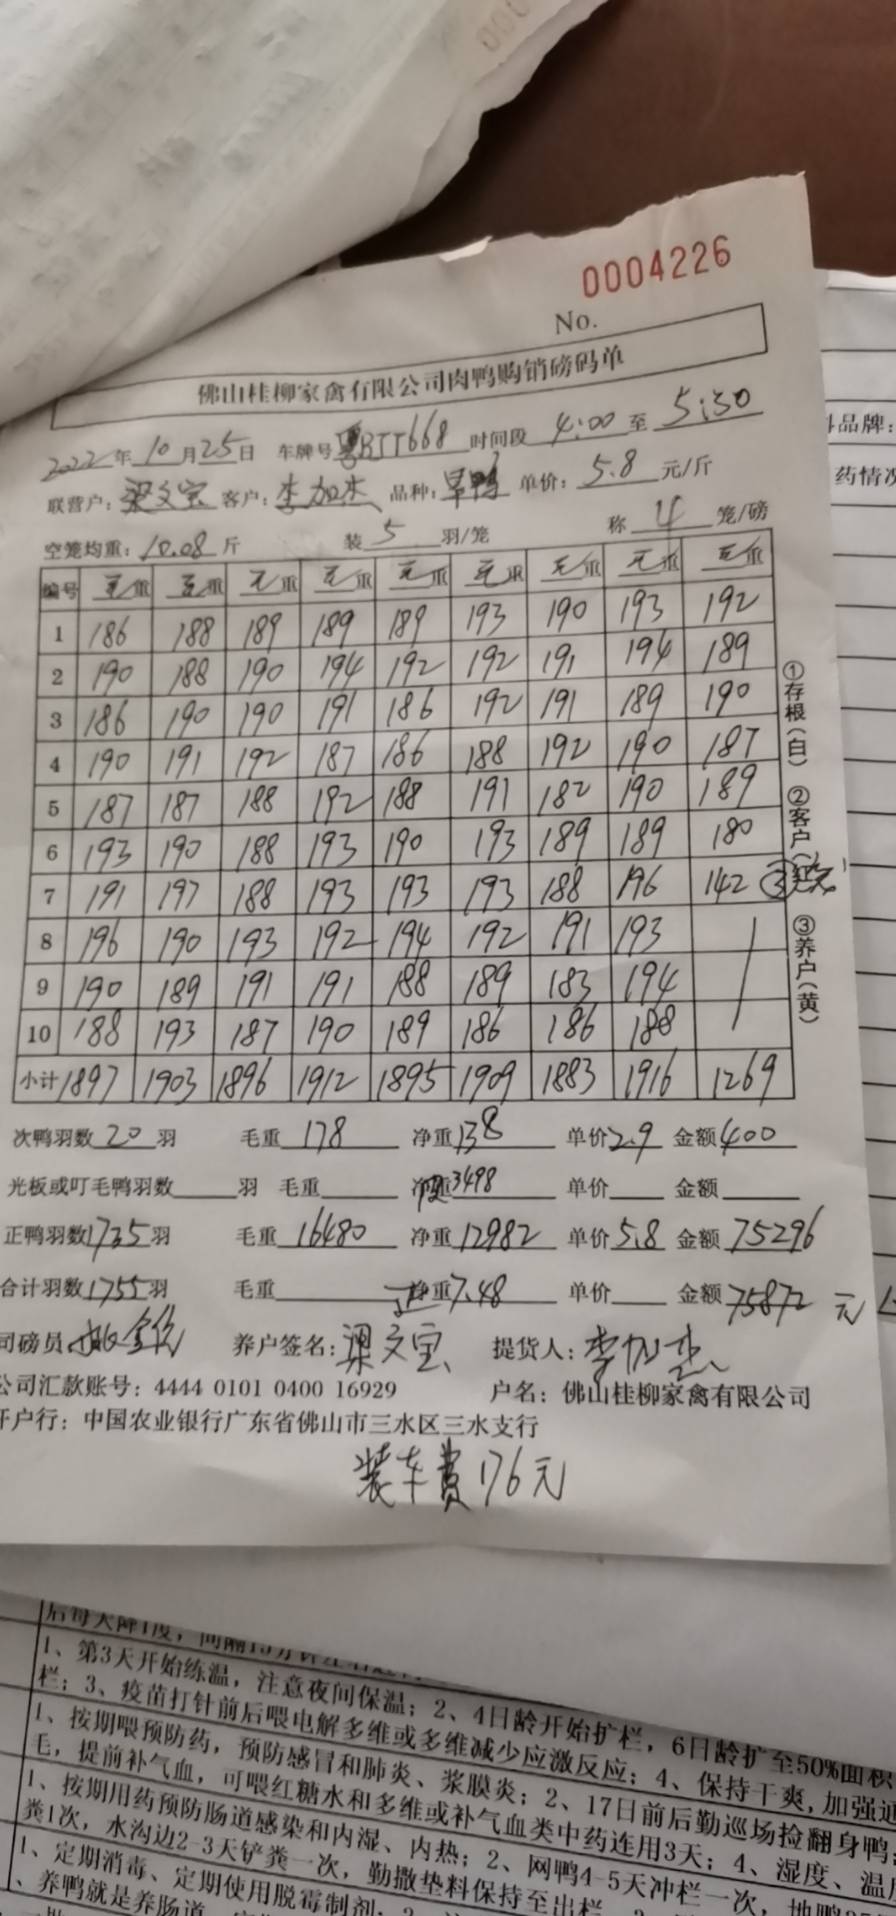 0004226
No.
佛山桂柳家禽有限公司肉鸭购销磅码单
2022年10月25日 车牌号 粤BTT668 时间段 4:00 至 5:30
联营户：梁文宝 客户：李加杰 品种：旱鸭 单价：5.8 元/斤
空笼均重：10.08 斤 装 5 羽/笼 称 4 笼/磅
编号 毛重 毛重 毛重 毛重 毛重 毛重 毛重 毛重 毛重
1 186 188 189 189 189 193 190 193 192
2 190 188 190 194 192 192 191 194 189
3 186 190 190 191 186 192 191 189 190
4 190 191 192 187 186 188 192 190 187
5 187 187 188 192 188 191 182 190 189
6 193 190 188 193 190 193 189 189 180
7 191 197 188 193 193 193 188 196 142 ③笼
8 196 190 193 192 194 192 191 193
9 190 189 191 191 188 189 183 194
10 188 193 187 190 189 186 186 188
小计 1897 1903 1896 1912 1895 1909 1883 1916 1269
①存根（白） ②客户（ ③养户（黄）
次鸭羽数 20 羽 毛重 178 净重 138 单价 2.9 金额 400
光板或叮毛鸭羽数 羽 毛重 3498 单价 金额
正鸭羽数 1735 羽 毛重 16480 净重 12982 单价 5.8 金额 75296
合计羽数 1755 羽 毛重 重 7.48 单价 金额 75872 元
司磅员： 养户签名：梁文宝 提货人：李加杰
公司汇款账号：4444 0101 0400 16929 户名：佛山桂柳家禽有限公司
开户行：中国农业银行广东省佛山市三水区三水支行
装车费176元
品牌：
药情况
后每天降1度，间隔15分钟
1、第3天开始练温，注意夜间保温；2、4日龄开始扩栏，6日龄扩至50%面积
栏；3、疫苗打针前后喂电解多维或多维减少应激反应；4、保持干爽，加强通
1、按期喂预防药，预防感冒和肺炎、浆膜炎；2、17日前后勤巡场捡翻身鸭；
毛，提前补气血，可喂红糖水和多维或补气血类中药连用3天；4、湿度、温度
1、按期用药预防肠道感染和内湿、内热；2、网鸭4-5天冲栏一次，地鸭
粪1次，水沟边2-3天铲粪一次，勤撒垫料保持至出栏
1、定期消毒、定期使用脱霉制剂；
、养鸭就是养肠道